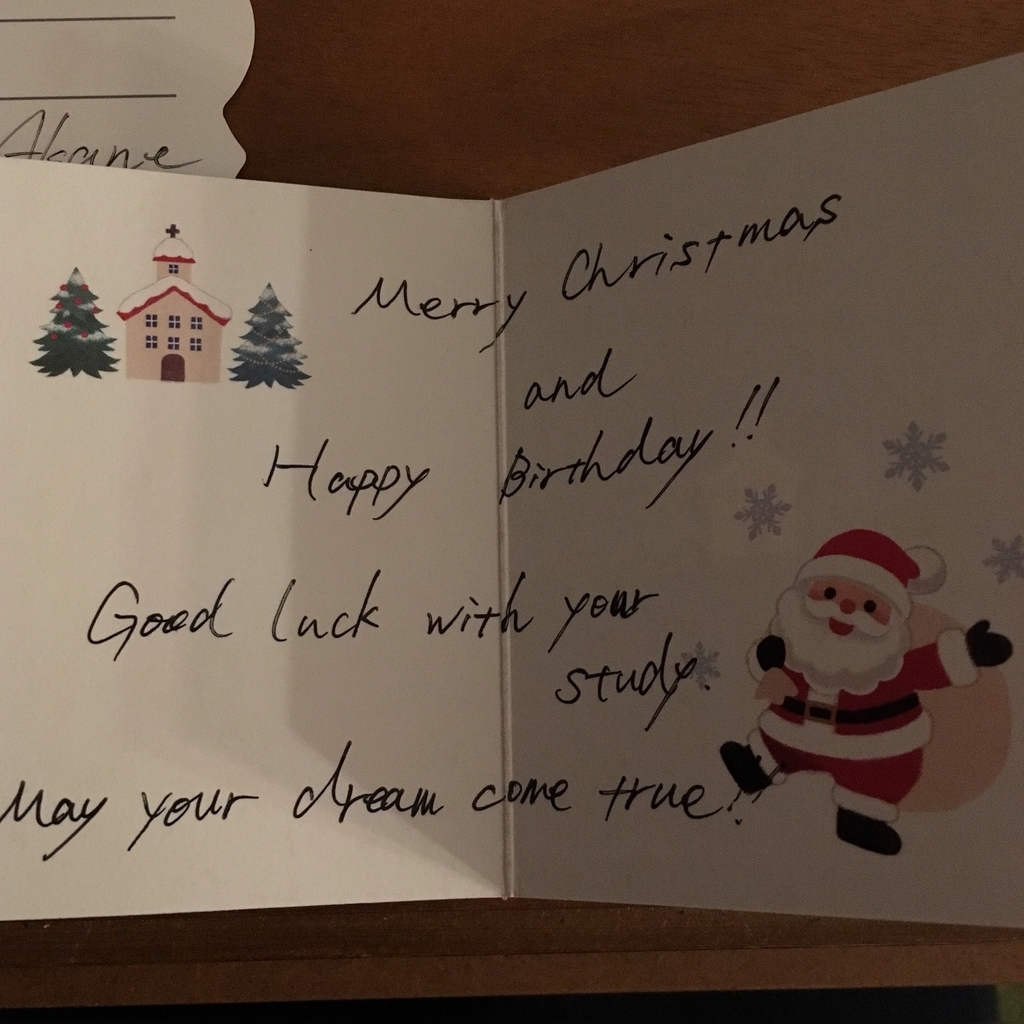 Akane
Merry Christmas
and
Happy Birthday!!
Good luck with your
study.
May your dream come true!!